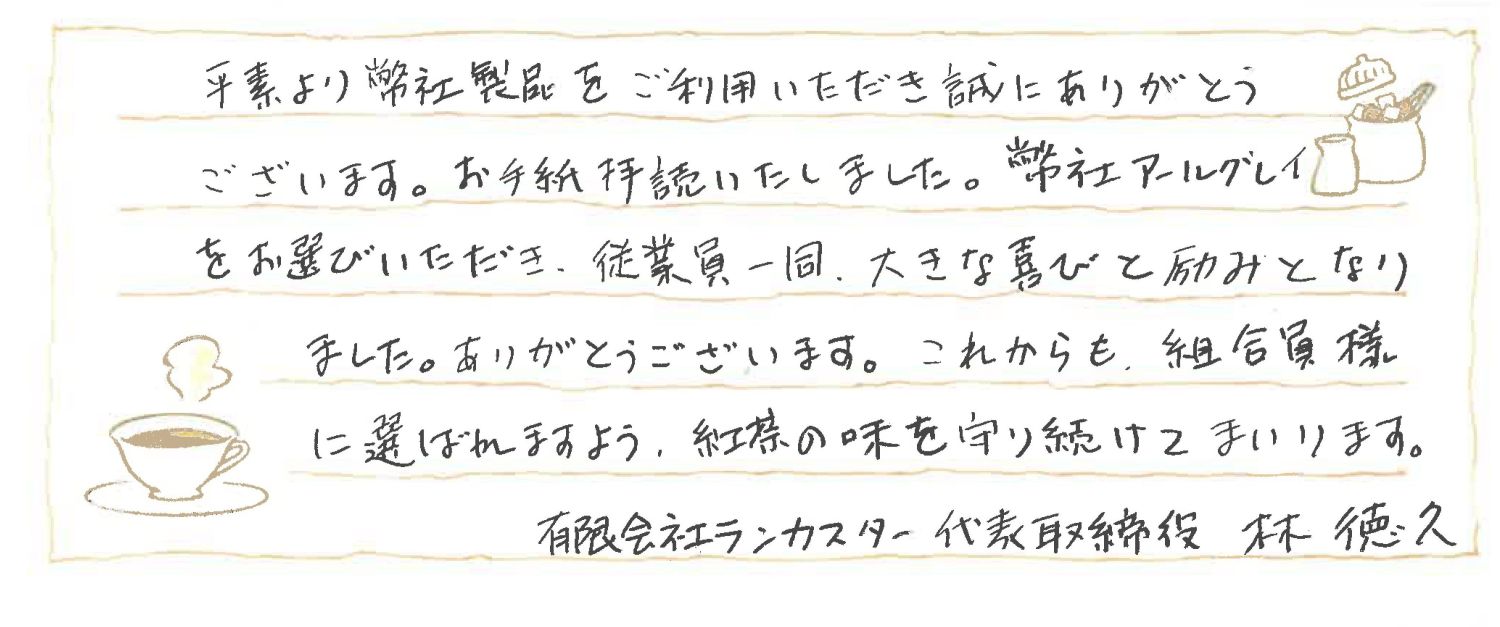 平素より弊社製品をご利用いただき誠にありがとう
ございます。お手紙拝読いたしました。弊社アールグレイ
をお選びいただき、従業員一同、大きな喜びと励みとなり
ました。ありがとうございます。これからも、組合員様
に選ばれますよう、紅茶の味を守り続けてまいります。
有限会社ランカスター 代表取締役 林 徳久